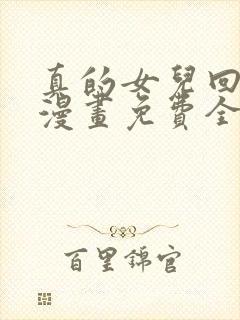 真的女兒回
漫畫免費全
百里錦官